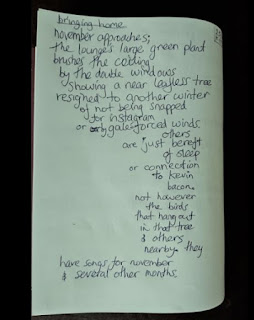 bringing home
november approaches;
the lounge's large green plant
brushes the ceiling
by the double windows
showing a near leafless tree
resigned to another winter
of not being snapped
for instagram
or by gale forced winds
others
are just bereft
of sleep
or connection
to kevin
bacon.
not however
the birds
that hang out
in that tree
& others
nearby. they
have songs for november
& several other months